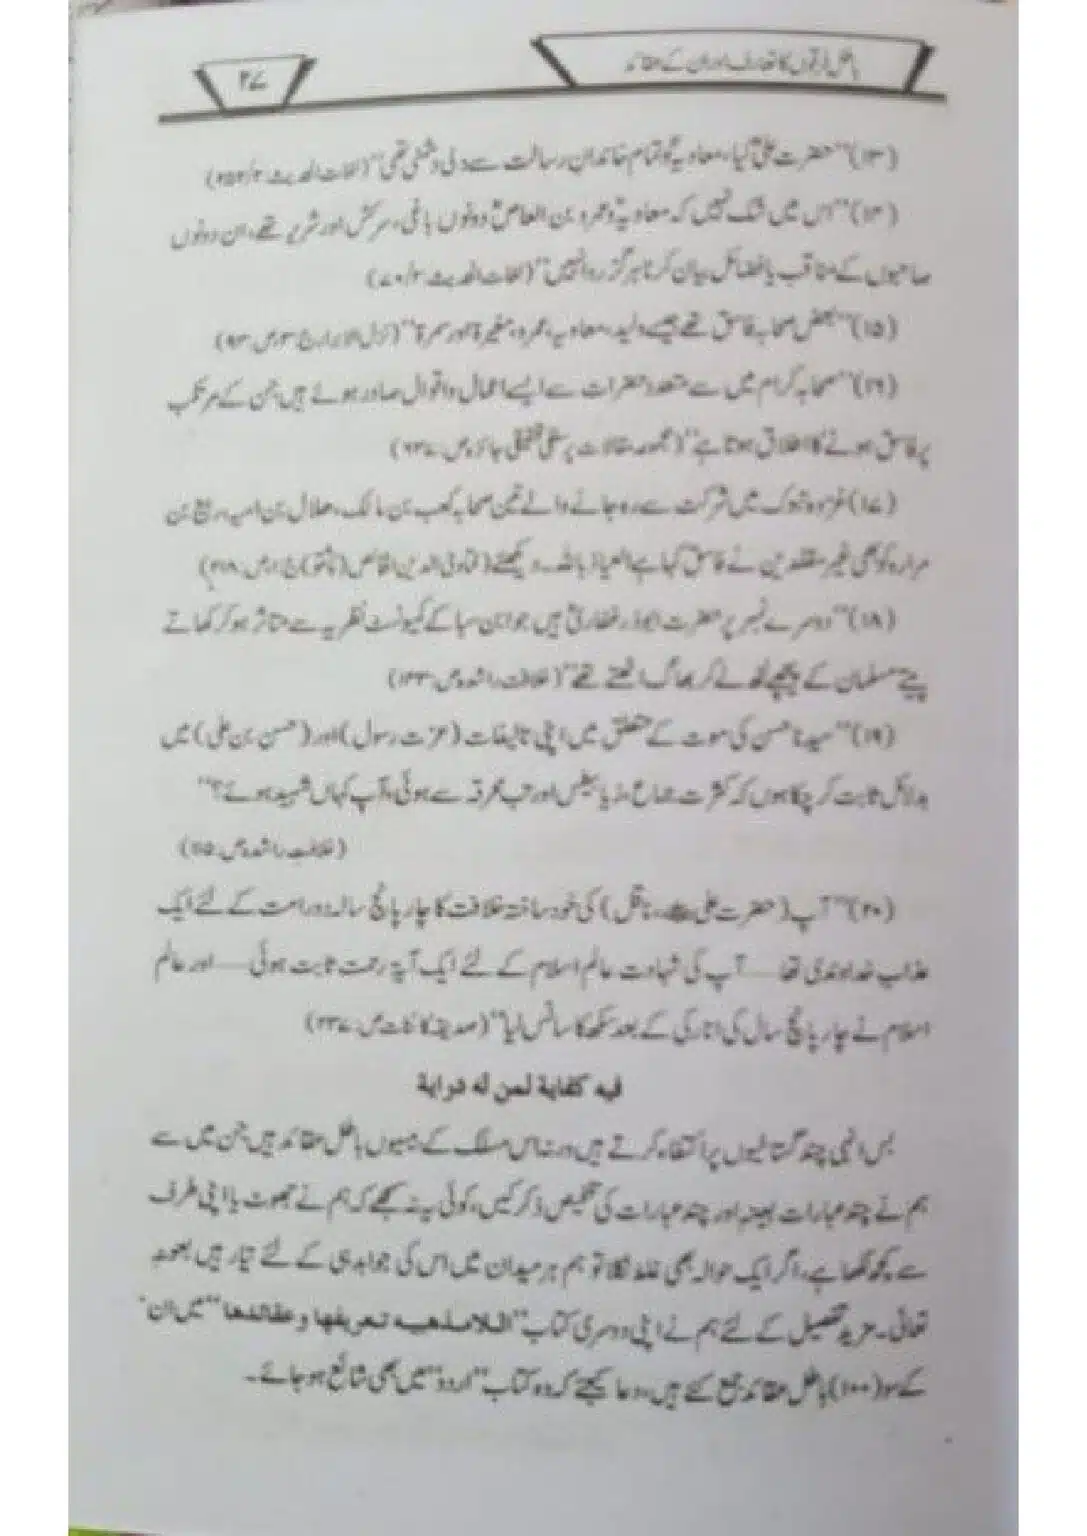 باطل فرقوں کا تعارف اور ان کے عقائد
۴۷
(۱۳)"حضرت علیؓ کیا، معاویہؓ کو تمام خاندان رسالت سے دلی دشمنی تھی" (لغات الحدیث
(۱۴)"اس میں شک نہیں کہ معاویہؓ و عمرو بن العاصؓ دونوں باغی، سرکش اور شریر تھے، ان دونوں
صاحبوں کے مناقب یا فضائل بیان کرنا ہرگز روا نہیں" (لغات الحدیث
(۱۵)"بعض صحابہ فاسق تھے جیسے ولید، معاویہ، عمرو، مغیرہ اور سمرۃ" (نزل الابرار ج۳ ص۹۴)
(۱۶)"صحابہ کرام میں سے متعدد حضرات سے ایسے اعمال و اقوال صادر ہوئے ہیں جن کے مرتکب
پر فاسق ہونے کا اطلاق ہوتا ہے" (مجموعہ مقالات پر سلفی تحقیقی جائزہ ص
(۱۷) غزوہ تبوک میں شرکت سے رہ جانے والے تین صحابہ کعب بن مالک، ھلال بن امیہ، ربیع بن
مرارہ کو بھی غیر مقلدین نے فاسق کہا ہے العیاذ باللہ۔ دیکھئے
(۱۸)"دوسرے نمبر پر حضرت ابوذر غفاریؓ ہیں جو ابن سبا کے کمیونسٹ نظریہ سے متاثر ہو کر کھاتے
پیتے مسلمان کے پیچھے لٹھ لے کر بھاگ اٹھتے تھے" (خلافت راشدہ ص۱۴۳)
(۱۹)"سیدنا حسن کی موت کے متعلق میں اپنی تالیفات (عزت رسول) اور (حسن بن علی) میں
بدلائل ثابت کر چکا ہوں کہ کثرت جماع، ذیابیطس اور تپ محرقہ سے ہوئی، آپ کہاں شہید ہوئے؟"
(خلافت راشدہ ص۱۱۵)
(۲۰)"آپ (حضرت علیؓ، ناقل) کی خود ساختہ خلافت کا چار پانچ سالہ دور امت کے لئے ایک
عذاب خداوندی تھا ۔۔۔ آپ کی شہادت عالم اسلام کے لئے ایک آیۂ رحمت ثابت ہوئی ۔۔۔ اور عالم
اسلام نے چار پانچ سال کی انارکی کے بعد سکھ کا سانس لیا" (صدیقہ کائنات ص۲۳۷)
فیه کفایة لمن له درایة
بس انہی چند گستاخیوں پر اکتفاء کرتے ہیں ورنہ اس مسلک کے بیسیوں باطل عقائد ہیں جن میں سے
ہم نے چند عبارات بعینہ اور چند عبارات کی تلخیص ذکر کیں، کوئی یہ نہ سمجھے کہ ہم نے جھوٹ یا اپنی طرف
سے کچھ لکھا ہے، اگر ایک حوالہ بھی غلط نکلا تو ہم ہر میدان میں اس کی جوابدہی کے لئے تیار ہیں بعونہ
تعالٰی۔ مزید تفصیل کے لئے ہم نے اپنی دوسری کتاب "اللامذهبیه تعریفها و عقائدها" میں ان
کے سو (۱۰۰) باطل عقائد جمع کئے ہیں، دعا کیجئے کہ وہ کتاب "اردو" میں بھی شائع ہو جائے۔